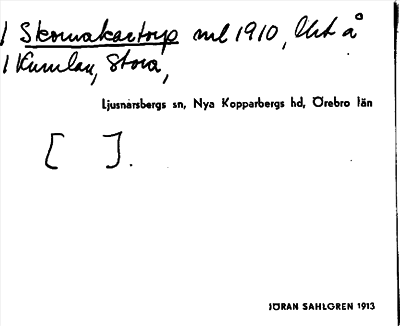 / Skomakartorp ml 1910, Urt å
/ Kumlan, Stora,
Ljusnarsbergs sn, Nya Kopparbergs hd, Örebro län
[ ].
JÖRAN SAHLGREN 1913